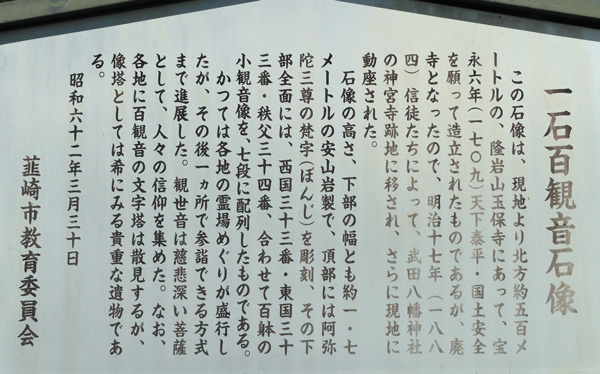 一石百観音石像
この石像は、現地より北方約五百メ
ートルの、隆岩山玉保寺にあって、宝
永六年(一七〇九)天下泰平・国土安全
を願って造立されたものであるが、廃
寺となったので、明治十七年(一八八
四)信徒たちによって、武田八幡神社
の神宮寺跡地に移され、さらに現地に
動座された。
石像の高さ、下部の幅とも約一・七
メートルの安山岩製で、頂部には阿弥
陀三尊の梵字(ぼんじ)を彫刻、その下
部全面には、西国三十三番・東国三十
三番・秩父三十四番、合わせて百躰の
小観音像を、七段に配列したものである。
かつては各地の霊場めぐりが盛行し
たが、その後一ヵ所で参詣できる方式
まで進展した。観世音は慈悲深い菩薩
として、人々の信仰を集めた。なお、
各地に百観音の文字塔は散見するが、
像塔としては希にみる貴重な遺物であ
る。
昭和六十二年三月三十日
韮崎市教育委員会